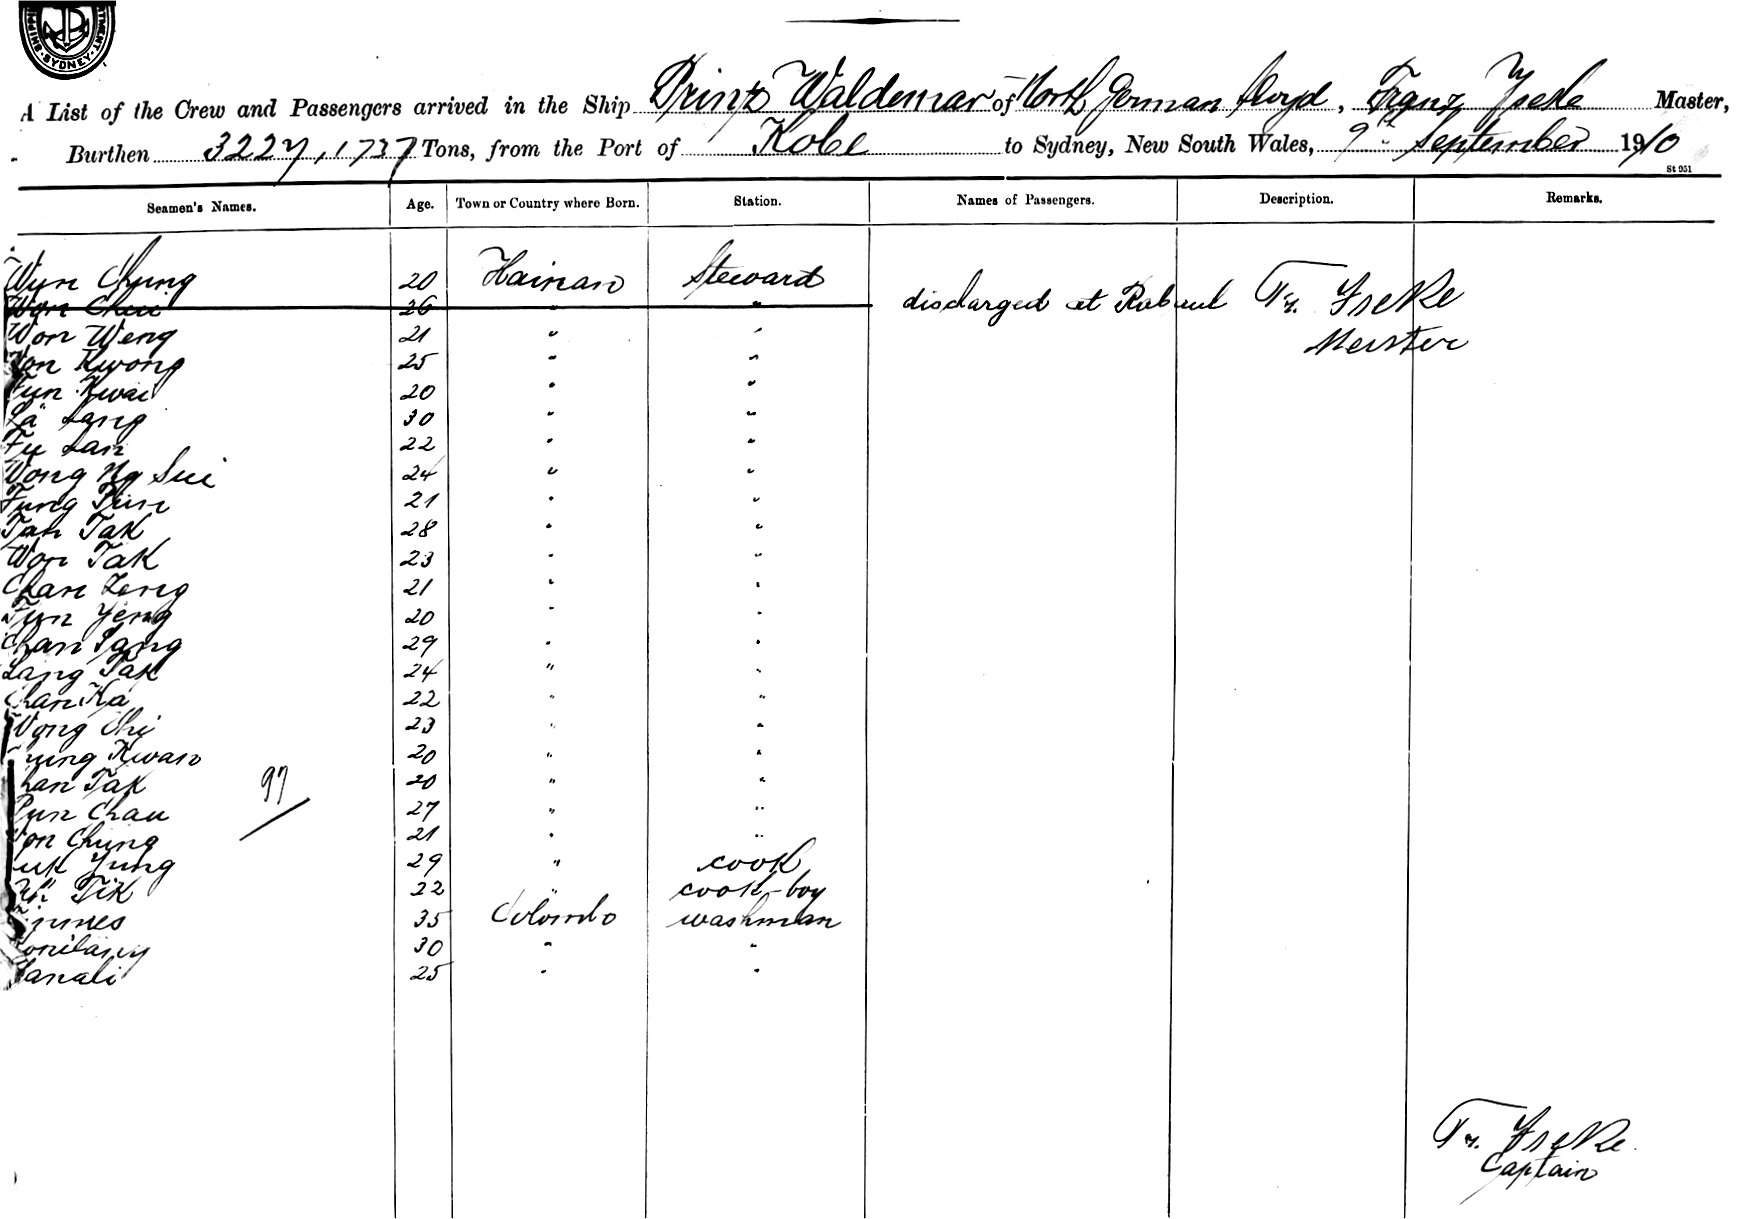 SHIPPING DEPARTMENT SYDNEY
A List of the Crew and Passengers arrived in the Ship Prinz Waldemar of North German Lloyd, Franz Iseke Master,
Burthen 3227, 1737 Tons, from the Port of Kobe to Sydney, New South Wales, 9th September 1910
St 951
Seamen's Names. Age. Town or Country where Born. Station. Names of Passengers. Description. Remarks.
Wun Chung 20 Hainan Steward
Won Chui 26 " " discharged at Rabaul Fr. Iseke
Won Weng 21 " " Meister
Won Kwong 25 " "
Fun Kwai 20 " "
Sang 30 " "
Fu Lan 22 " "
Wong Ng Sui 24 " "
Fung Pun 21 " "
Tan Tak 28 " "
Won Tak 23 " "
Chan Zeng 21 " "
Fun Yeng 20 " "
Chan Sang 29 " "
Lang Tak 24 " "
Chan Ka 22 " "
Wong Chi 23 " "
Kwan 20 " "
Chan Tak 20 " "
97
Pun Chau 27 " "
Won Chung 21 " "
Yung 29 " cook
Tik 22 " cook-boy
35 Colombo washman
30 " "
25 " "
Fr. Iseke
Captain